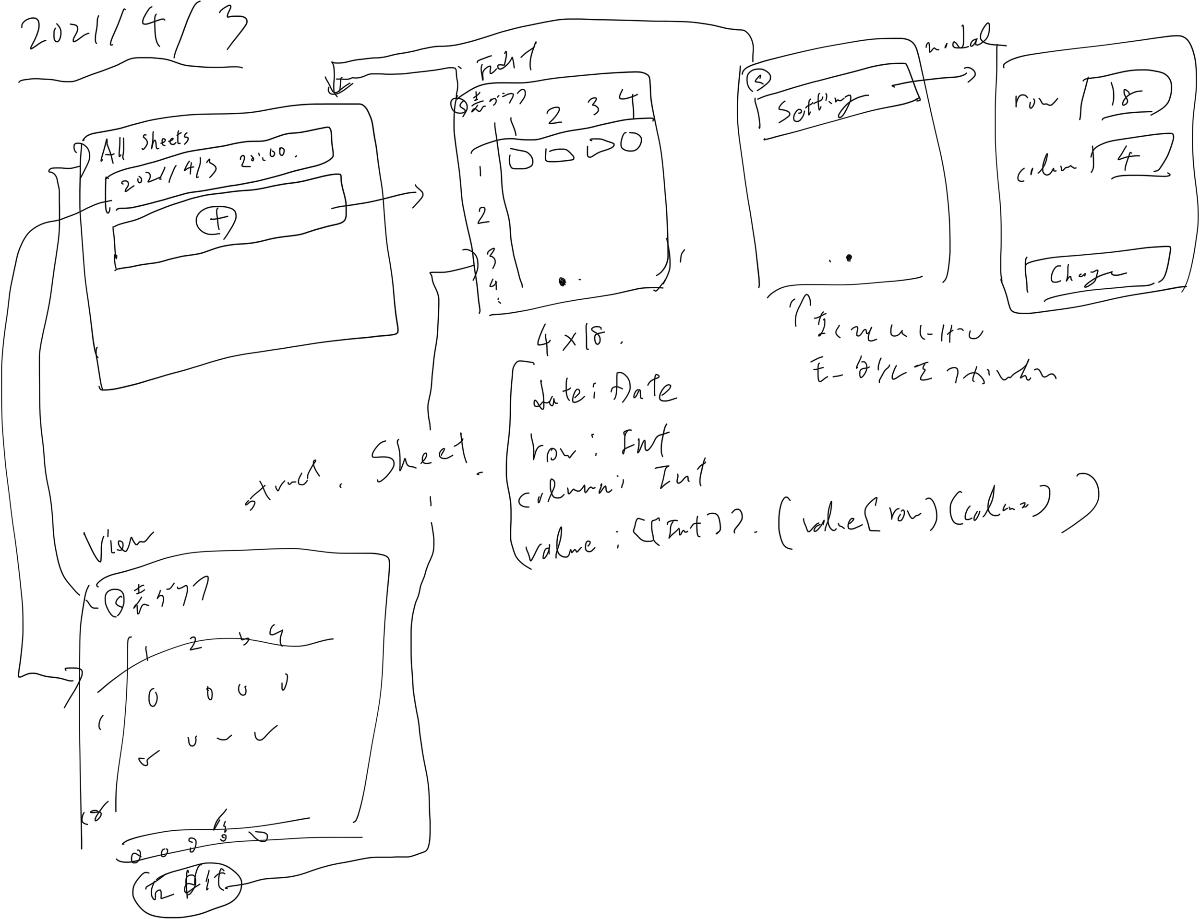 2021/4/3
All Sheets
2021/4/3 20:00.
+
Edit
表グラフ
1 2 3 4
1
2
3
4
4×18.
Setting
modal
row 18
column 4
Change
モーダルを
struct. Sheet.
date: Date
row: Int
column: Int
value: [[Int]]. (value[row)(column))
View
表グラフ
1 2 3 4
0 0 0 0
1
18
0 0 0 0 0
Edit